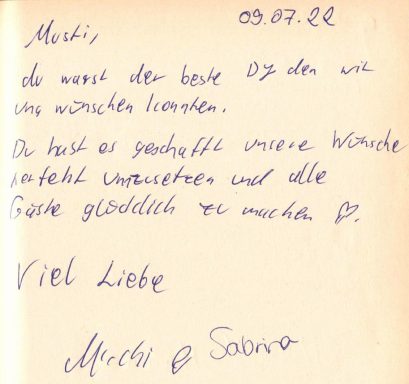 09.07.22
Musti,
du warst der beste DJ den wir
uns wünschen konnten.
Du hast es geschafft unsere Wünsche
perfekt umzusetzen und alle
Gäste glücklich zu machen ♡.
Viel Liebe
Michi & Sabrina